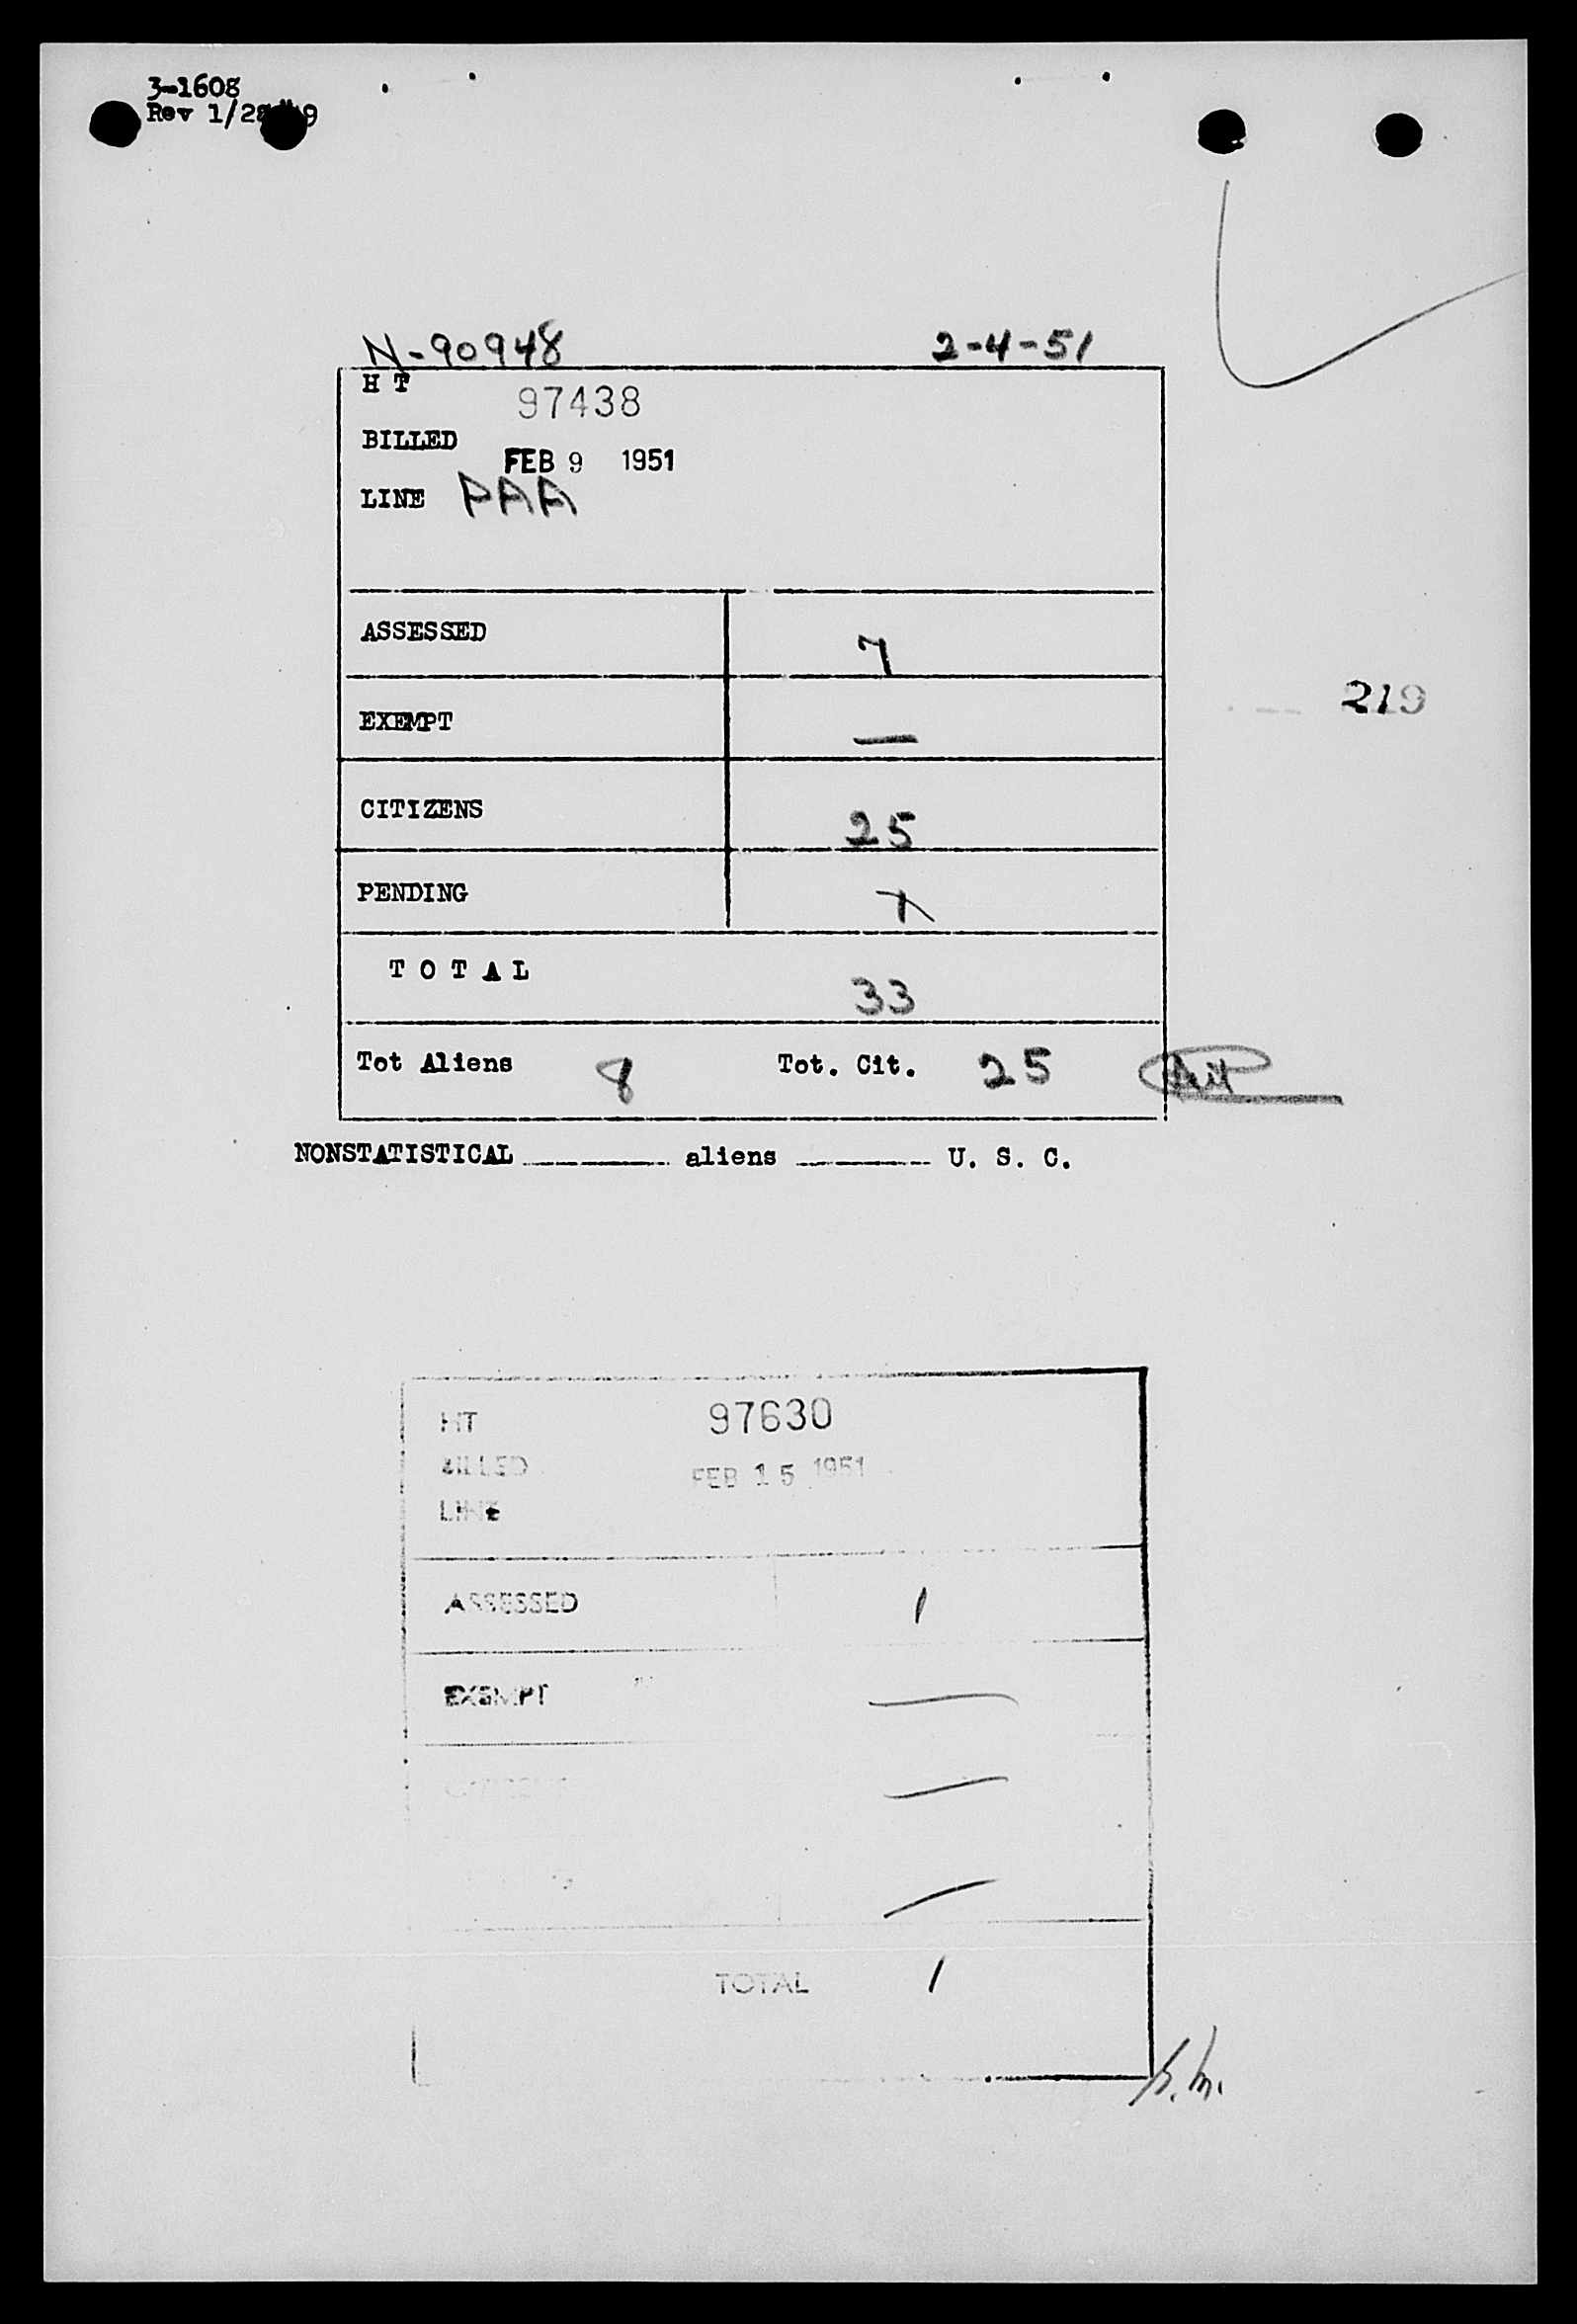 3-1608
Rev 1/28/49
N-90948 2-4-51
H T 97438
BILLED FEB 9 1951
LINE PAA
ASSESSED 7
219
EXEMPT —
CITIZENS 25
PENDING
T O T A L 33
Tot Aliens 8 Tot. Cit. 25
NONSTATISTICAL ______ aliens ______ U. S. C.
HT 97630
BILLED FEB 15 1951
LINE
ASSESSED 1
EXEMPT —
—
TOTAL 1